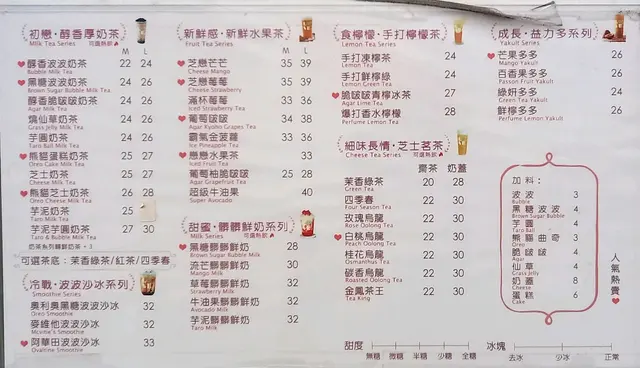 初戀·醇香厚奶茶
Milk Tea Series 可選熱飲
M L
醇香波波奶茶 22 24
Bubble Milk Tea
黑糖波波奶茶 24 26
Brown Sugar Bubble Milk Tea
醇香脆啵啵奶茶 24 26
Agar Milk Tea
燒仙草奶茶 24 26
Grass Jelly Milk Tea
芋圓奶茶 24 26
Taro Ball Milk Tea
熊貓蛋糕奶茶 25 27
Oreo Cake Milk Tea
芝士奶茶 25 27
Cheese Milk Tea
熊貓芝士奶茶 26 28
Oreo Cheese Milk Tea
芋泥奶茶 25
Taro Milk Tea
芋泥芋圓奶茶 27 30
Taro & Bubble Milk Tea
奶茶系列轉鮮奶茶+3
可選茶底：茉香綠茶/紅茶/四季春
冷戰·波波沙冰系列
Smoothie Series
奧利奧黑糖波波沙冰 32
Oreo Smoothie
麥維他波波沙冰 32
Mcvitie's Smoothie
阿華田波波沙冰 33
Ovaltine Smoothie
新鮮感·新鮮水果茶
Fruit Tea Series
M L
芝戀芒芒 35 39
Cheese Mango
芝戀莓莓 35 39
Cheese Strawberry
滿杯莓莓 33 36
Iced Strawberry Tea
葡萄啵啵 34 38
Agar Kyoho Grapes Tea
霸氣金菠蘿 33 36
Ice Pineapple Tea
戀戀水果茶 33
Iced Fruit Tea
葡萄柚脆啵啵 25 28
Agar Grapefruit Tea
超級牛油果 40
Super Avocado
甜蜜·髒髒鮮奶系列
Milk Series 可選熱飲
黑糖髒髒鮮奶 28
Brown Sugar Bubble Milk
流芒髒髒鮮奶 30
Mango Milk
草莓髒髒鮮奶 32
Strawberry Milk
牛油果髒髒鮮奶 32
Avocado Milk
芋泥髒髒鮮奶 32
Taro Milk
食檸檬·手打檸檬茶
Lemon Tea Series
手打凍檸茶 24
Lemon Tea
手打鮮檸綠 24
Lemon Green Tea
脆啵啵青檸冰茶 27
Agar Lime Tea
爆打香水檸檬 28
Perfume Lemon Tea
細味長情·芝士茗茶
Cheese Tea Series 可選熱飲
齋茶 奶蓋
茉香綠茶 20 28
Green Tea
四季春 22 30
Four Season Tea
玫瑰烏龍 22 30
Rose Oolong Tea
白桃烏龍 22 30
Peach Oolong Tea
桂花烏龍 22 30
Osmanthus Tea
碳香烏龍 22 30
Roasted Oolong Tea
金鳳茶王 22 30
Tea King
成長·益力多系列
Yakult Series
芒果多多 26
Mango Yakult
百香果多多 26
Passion Fruit Yakult
綠妍多多 24
Green Tea Yakult
鮮檸多多 26
Perfume Lemon Yakult
加料：
波波 3
Bubble
黑糖波波 4
Brown Sugar Bubble
芋圓 4
Taro Ball
熊貓曲奇 3
Oreo
脆啵啵 4
Agar
仙草 4
Grass Jelly
奶蓋 8
Cheese
蛋糕 6
Cake
人氣熱賣
甜度 無糖 微糖 半糖 少糖 全糖
冰塊 去冰 少冰 正常